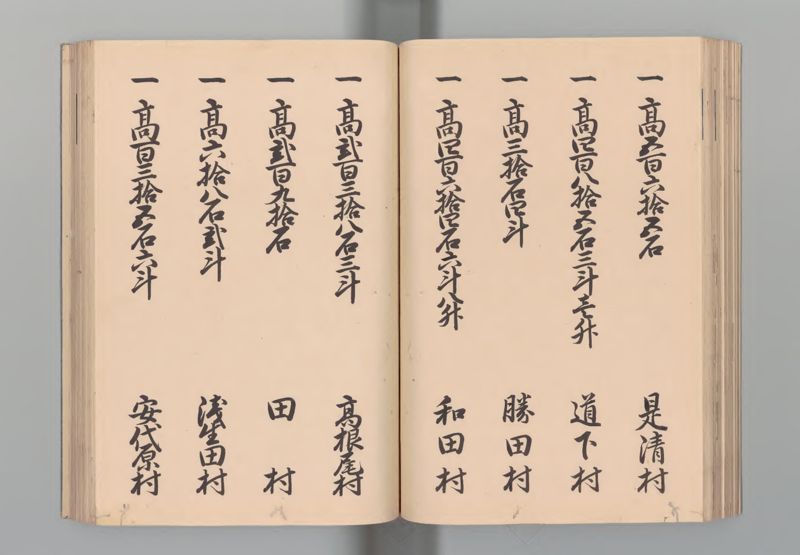 一 高五百六拾五石 是清村
一 高四百八拾五石三斗壱升 道下村
一 高三拾石四斗 勝田村
一 高四百六拾四石六斗八升 和田村
一 高弐百三拾八石三斗 高根尾村
一 高弐百九拾石 田村
一 高六拾八石弐斗 浅生田村
一 高百三拾五石六斗 安代原村